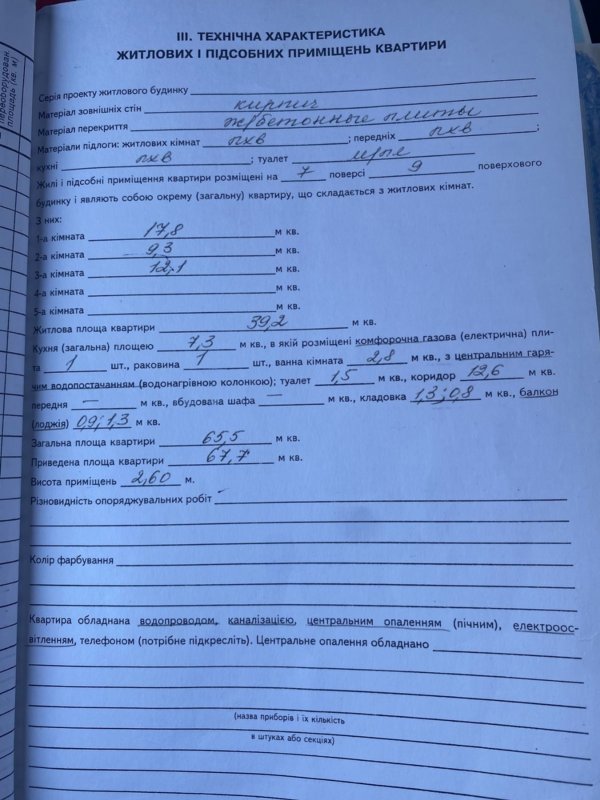 Переобладнан.
площадь (кв. м)
III. ТЕХНІЧНА ХАРАКТЕРИСТИКА
ЖИТЛОВИХ І ПІДСОБНИХ ПРИМІЩЕНЬ КВАРТИРИ
Серія проекту житлового будинку
Матеріал зовнішніх стін кирпич
Матеріал перекриття ж/бетонные плиты
Матеріали підлоги: житлових кімнат пхв ; передніх пхв ;
кухні пхв ; туалет
Жилі і підсобні приміщення квартири розміщені на 7 поверсі 9 поверхового
будинку і являють собою окрему (загальну) квартиру, що складається з житлових кімнат.
З них:
1-а кімната 17,8 м кв.
2-а кімната 9,3 м кв.
3-а кімната 12,1 м кв.
4-а кімната м кв.
5-а кімната м кв.
Житлова площа квартири 39,2 м кв.
Кухня (загальна) площею 7,3 м кв., в якій розміщені комфорочна газова (електрична) пли-
та 1 шт., раковина 1 шт., ванна кімната 2,8 м кв., з центральним гаря-
чим водопостачанням (водонагрівною колонкою); туалет 1,5 м кв., коридор 12,6 м кв.
передня — м кв., вбудована шафа — м кв., кладовка 1,3; 0,8 м кв., балкон
(лоджія) 0,9; 1,3 м кв.
Загальна площа квартири 65,5 м кв.
Приведена площа квартири 67,7 м кв.
Висота приміщень 2,60 м.
Різновидність опоряджувальних робіт
Колір фарбування
Квартира обладнана водопроводом, каналізацією, центральним опаленням (пічним), електроос-
вітленням, телефоном (потрібне підкресліть). Центральне опалення обладнано
(назва приборів і їх кількість
в штуках або секціях)